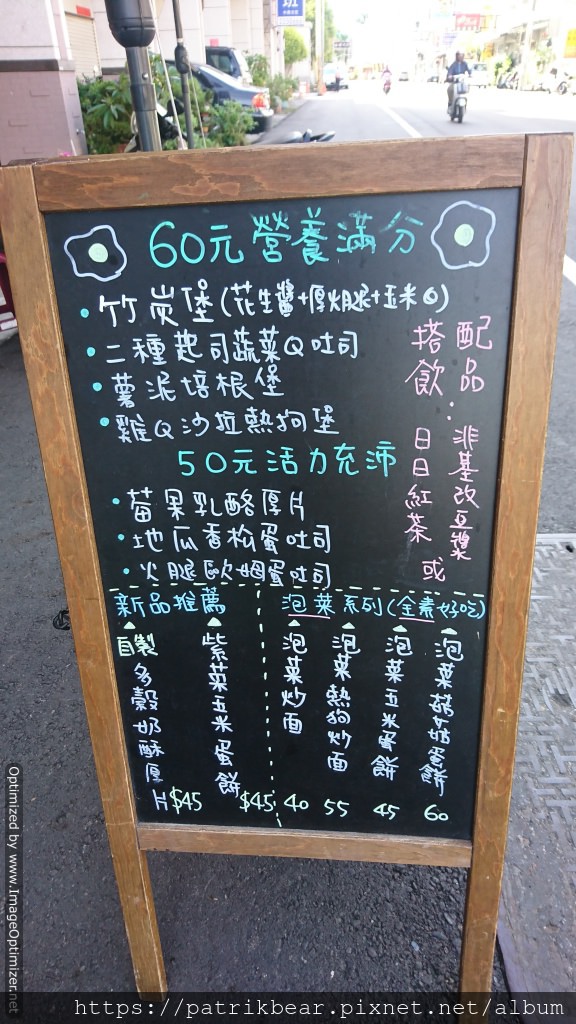 班
60元營養滿分
• 竹炭堡(花生醬+厚火腿+玉米
• 二種起司蔬菜Q吐司
• 薯泥培根堡
• 雞Q沙拉熱狗堡
50元活力充沛
• 莓果乳酪厚片
• 地瓜香松蛋吐司
• 火腿歐姆蛋吐司
配品:非基改豆漿或
搭飲 日日紅茶
新品推薦
自製多穀奶酥厚片 $45
紫菜玉米蛋餅 $45
泡菜系列(全素好吃)
泡菜炒面 40
泡菜熱狗炒面 55
泡菜玉米蛋餅 45
泡菜菇菇蛋餅 60
Optimized by www.ImageOptimizer.net
https://patrikbear.pixnet.net/album